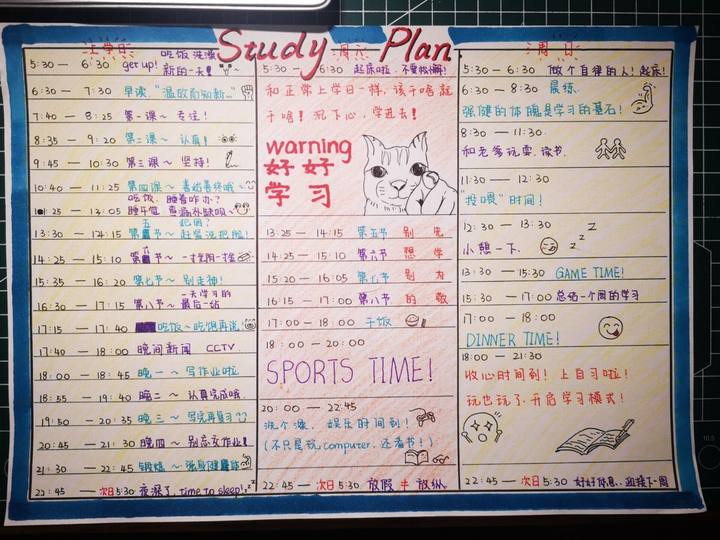 Study Plan
上学日
5:30 — 6:30 get up! 吃饭 洗澡
新的一天!
6:30 — 7:30 早读, "温故而知新..."
7:40 — 8:25 第一课～专注!
8:35 — 9:20 第二课～认真!
9:45 — 10:30 第三课～坚持!
10:40 — 11:25 第四课～善始善终哦～
吃饭, 睡着咋办?
11:25 — 13:05 睡午觉 查漏补缺呗～
13:30 — 14:15 第五节～赶紧洗把脸!
14:25 — 15:10 第六节～
15:35 — 16:20 第七节～别走神!
16:30 — 17:15 第八节～一天学习的
最后一站
17:15 — 17:40 吃饭～吃饱再说!
17:40 — 18:00 晚间新闻 CCTV
18:00 — 18:45 晚一～写作业啦
18:55 — 19:40 晚二～认真完成哦
19:50 — 20:35 晚三～写完再复习
20:45 — 21:30 晚四～别忘交作业!
21:30 — 22:45 锻炼～强身健体
22:45 — 次日5:30 夜深了, time to sleep!
周六
5:30 — 6:30 起床啦, 不要松懈!
和正常上学日一样, 该干啥就
干啥! 沉下心, 学进去!
warning
好好
学习
13:25 — 14:15 第五节 别 先
14:25 — 15:10 第六节 想 学
15:20 — 16:05 第七节 别 为
16:15 — 17:00 第八节 的 敬
17:00 — 18:00 干饭
18:00 — 20:00
SPORTS TIME!
20:00 — 22:45
洗个澡, 娱乐时间到!
(不只是玩computer, 还看书!)
22:45 — 次日5:30 放假 ≠ 放纵
周日
5:30 — 6:30 做个自律的人! 起床!
6:30 — 8:30 晨练,
强健的体魄是学习的基石!
8:30 — 11:30
和老爹玩耍, 读书.
11:30 — 12:30
"投喂"时间!
12:30 — 13:30
小憩一下.
z z Z
13:30 — 15:30 GAME TIME!
15:30 — 17:00 总结一周的学习
17:00 — 18:00
DINNER TIME!
18:00 — 21:30
收心时间到! 上自习啦!
玩也玩了, 开启学习模式!
22:45 — 次日5:30 好好休息, 迎接下一周